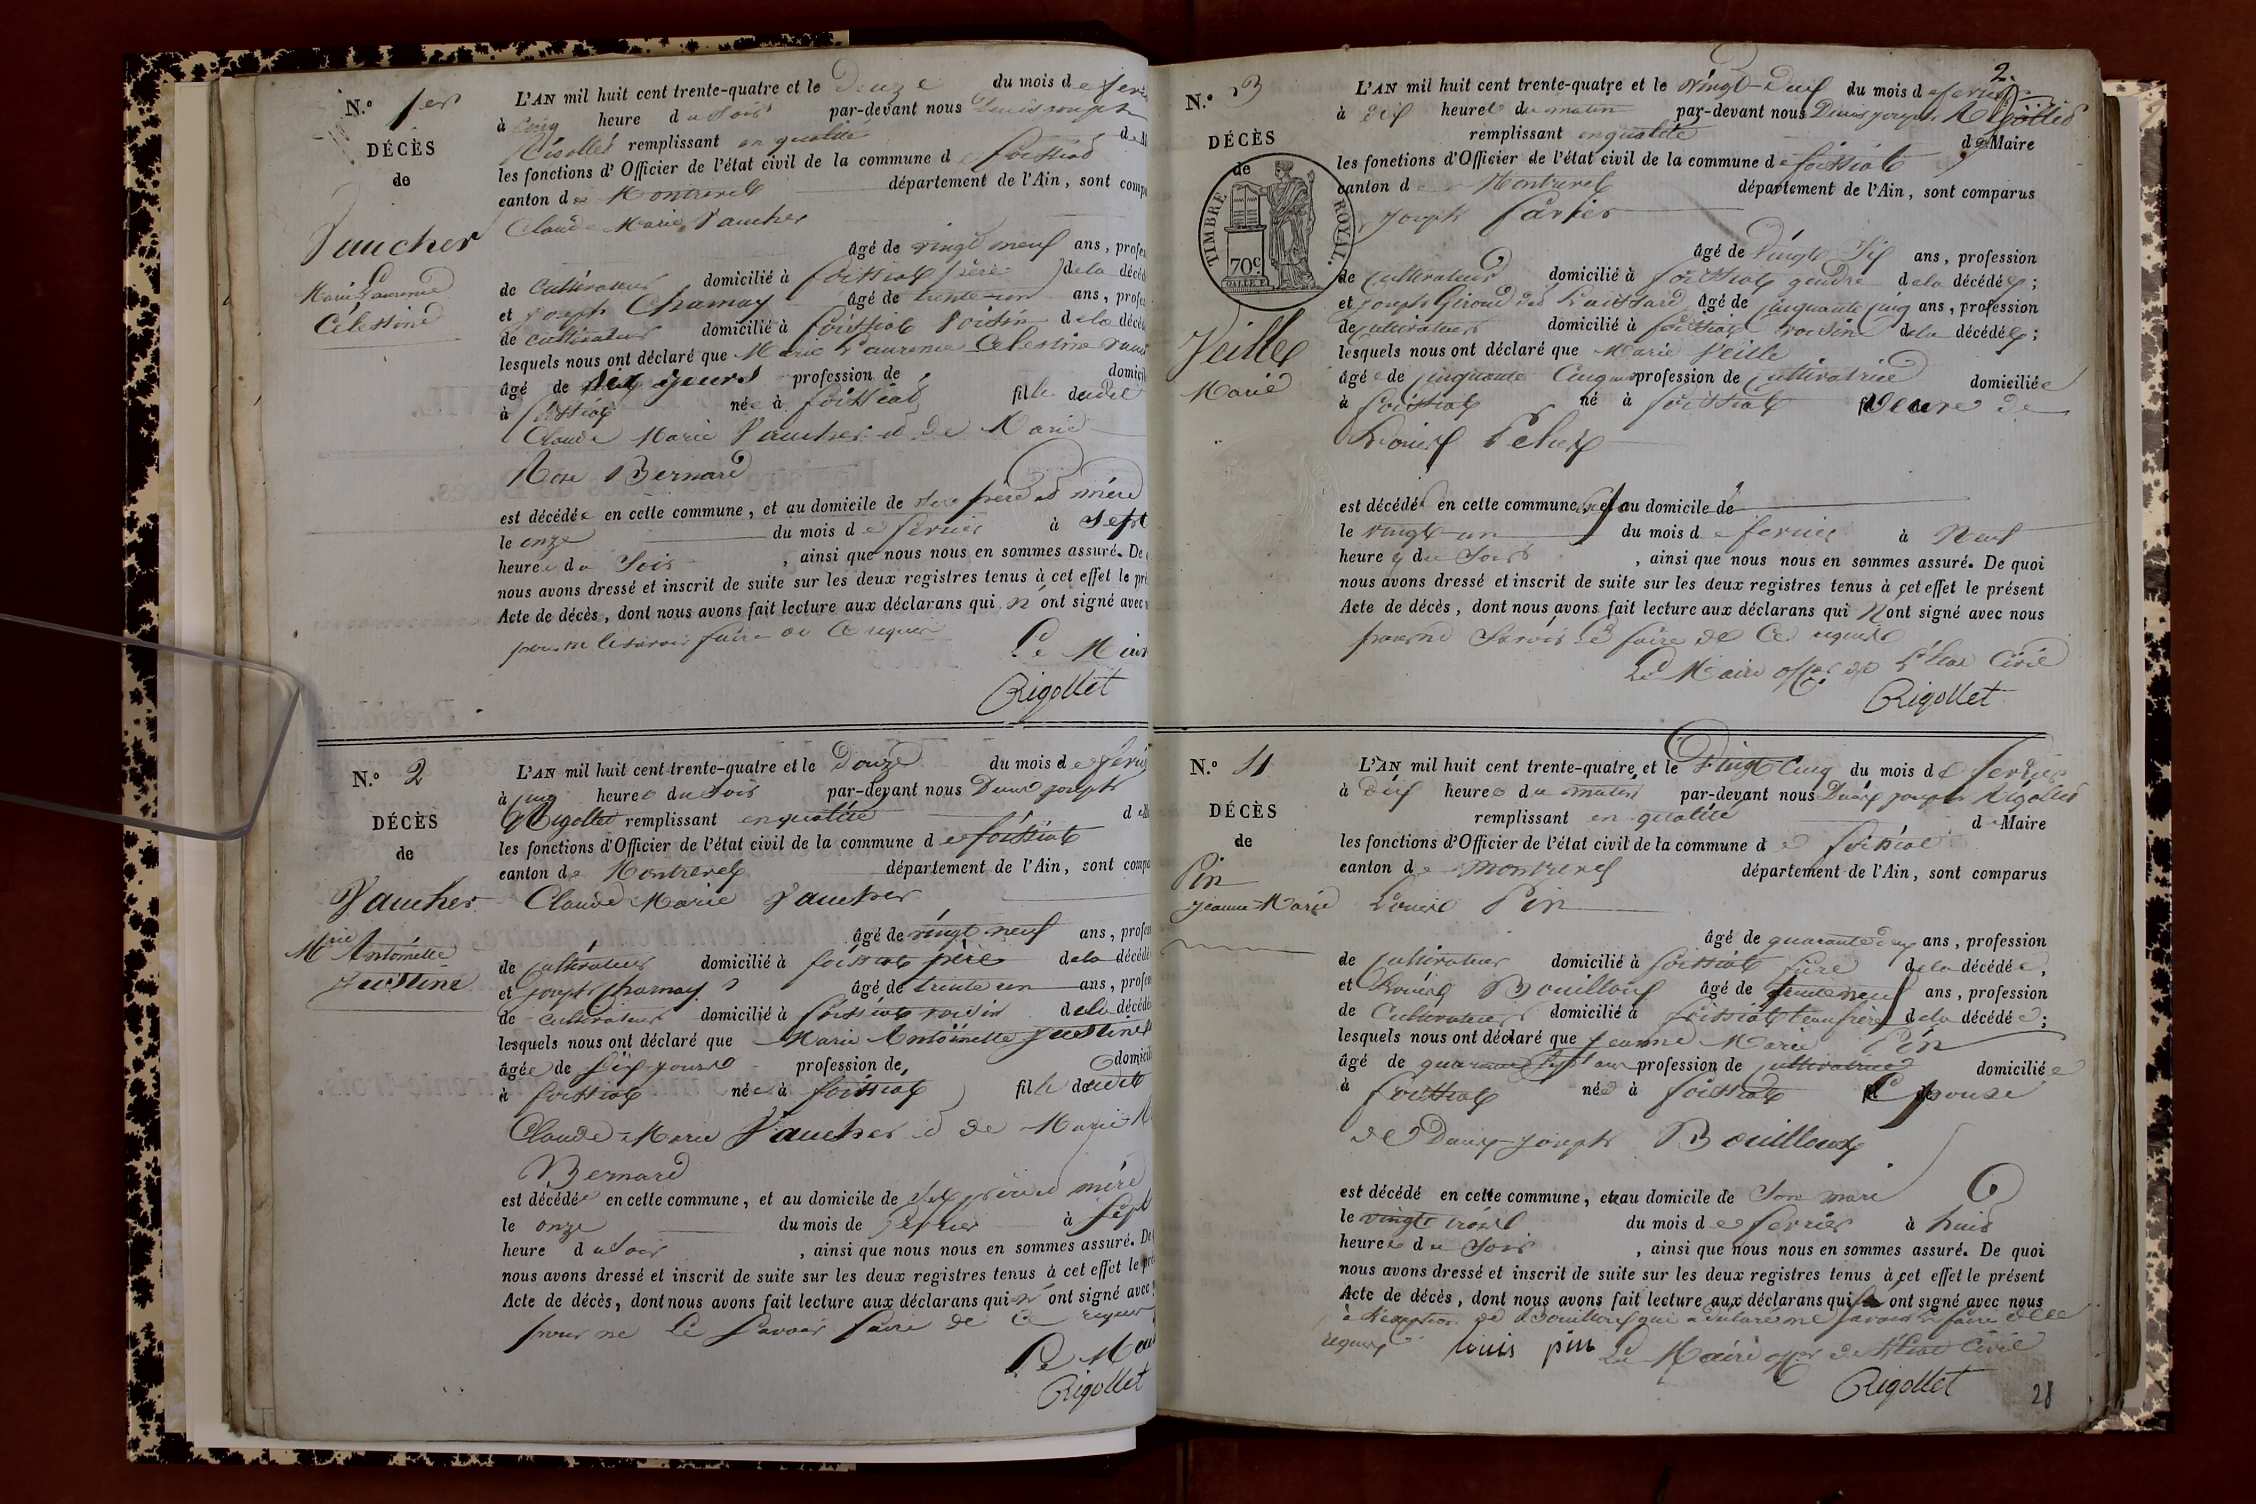 N.º 1er
DÉCÈS
de
Vaucher
Marie Laurence
Célestine
L'AN mil huit cent trente-quatre et le Douze du mois de
à cinq heure du Soir par-devant nous Denis Joseph
Rigollet remplissant en qualité
les fonctions d'Officier de l'état civil de la commune de foissiat
canton de Montrevel département de l'Ain, sont
Claude Marie Vaucher
âgé de vingt neuf ans,
de cultivateur domicilié à foissiat père de la
et joseph Chamay âgé de trente-un ans,
de cultivateur domicilié à foissiat Voisin de la
lesquels nous ont déclaré que Marie Laurence Celestine
âgé de six jours profession de
à foissiat née à foissiat fille dudit
Claude Marie Vaucher et de Marie
Rose Bernard
est décédée en cette commune, et au domicile de ses père et mère
le onze du mois de fevrier à Sept
heure du Soir, ainsi que nous nous en sommes assuré. De
nous avons dressé et inscrit de suite sur les deux registres tenus à cet effet le
Acte de décès, dont nous avons fait lecture aux déclarans qui n'ont signé avec
pour ne le savoir faire de ce requis
Le
Rigollet
N.º 2
DÉCÈS
de
Vaucher
Mrie Antoinette
Justine
L'AN mil huit cent trente-quatre et le Douze du mois de
à cinq heure du Soir par-devant nous Denis joseph
Rigollet remplissant en qualité
les fonctions d'Officier de l'état civil de la commune de foissiat
canton de Montrevel département de l'Ain, sont
Claude Marie Vaucher
âgé de vingt neuf ans,
de cultivateur domicilié à foissiat père de la
et joseph Chamay âgé de trente un ans,
de cultivateur domicilié à foissiat voisin de la
lesquels nous ont déclaré que Marie Antoinette Justine
âgée de six jours profession de
à foissiat née à foissiat fille dudit
Claude-Marie Vaucher et de Marie
Bernard
est décédée en cette commune, et au domicile de ses père et mère
le onze du mois de fevrier à Sept
heure du Soir, ainsi que nous nous en sommes assuré. De
nous avons dressé et inscrit de suite sur les deux registres tenus à cet effet le
Acte de décès, dont nous avons fait lecture aux déclarans qui n'ont signé avec
pour ne Le Savoir faire de ce requis
Le
Rigollet
2.
N.º 3
DÉCÈS
de
TIMBRE ROYAL.
70c
Veille
Marie
L'AN mil huit cent trente-quatre et le Vingt-Deux du mois de fevrier
à dix heure du matin par-devant nous Denis joseph Rigollet
remplissant en qualité de Maire
les fonctions d'Officier de l'état civil de la commune de foissiat
canton de Montrevel département de l'Ain, sont comparus
joseph
âgé de Vingt Six ans, profession
de cultivateur domicilié à foissiat gendre de la décédée;
et joseph Giroud âgé de cinquante cinq ans, profession
de cultivateur domicilié à foissiat voisin de la décédée;
lesquels nous ont déclaré que Marie Veille
âgée de cinquante Cinq ans profession de cultivatrice domiciliée
à foissiat né à foissiat Veuve de
Louis
est décédé en cette commune, et au domicile de
le vingt-un du mois de fevrier à Neuf
heure du Soir, ainsi que nous nous en sommes assuré. De quoi
nous avons dressé et inscrit de suite sur les deux registres tenus à cet effet le présent
Acte de décès, dont nous avons fait lecture aux déclarans qui N'ont signé avec nous
pour ne Savoir le faire de ce requis
Le Maire offer de L'Etat Civil
Rigollet
N.º 4
DÉCÈS
de
Pin
Jeanne-Marie
L'AN mil huit cent trente-quatre et le Vingt Cinq du mois de fevrier
à dix heure du matin par-devant nous Denis joseph Rigollet
remplissant en qualité de Maire
les fonctions d'Officier de l'état civil de la commune de foissiat
canton de montrevel département de l'Ain, sont comparus
Louis Pin
âgé de quarante deux ans, profession
de cultivateur domicilié à foissiat frère de la décédée,
et Louis Bouilloux âgé de trente neuf ans, profession
de Cultivateur domicilié à foissiat beau frère de la décédée;
lesquels nous ont déclaré que jeanne Marie Pin
âgé de quarante sept ans profession de cultivatrice domiciliée
à foissiat née à foissiat Epouse
de Denis-joseph Bouilloux
est décédé en cette commune, et au domicile de Son mari
le vingt trois du mois de fevrier à huit
heure du Soir, ainsi que nous nous en sommes assuré. De quoi
nous avons dressé et inscrit de suite sur les deux registres tenus à cet effet le présent
Acte de décès, dont nous avons fait lecture aux déclarans qui ont signé avec nous
à l'exception de Bouilloux qui a déclaré ne savoir le faire de ce
requis louis pin Le Maire offer de l'Etat Civil
Rigollet
28